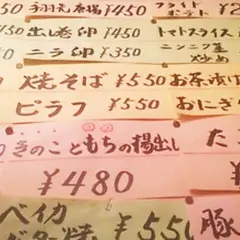 手羽元唐揚 ¥450 フライドポテト
出し巻卵 ¥450 トマトスライス
ニラ卵 ¥350 ニンニク芽炒め
焼そば ¥550 お茶漬け
ピラフ ¥550 おにぎ
きのこともちの揚出し
¥480
ベイカ
バター焼 ¥550 豚